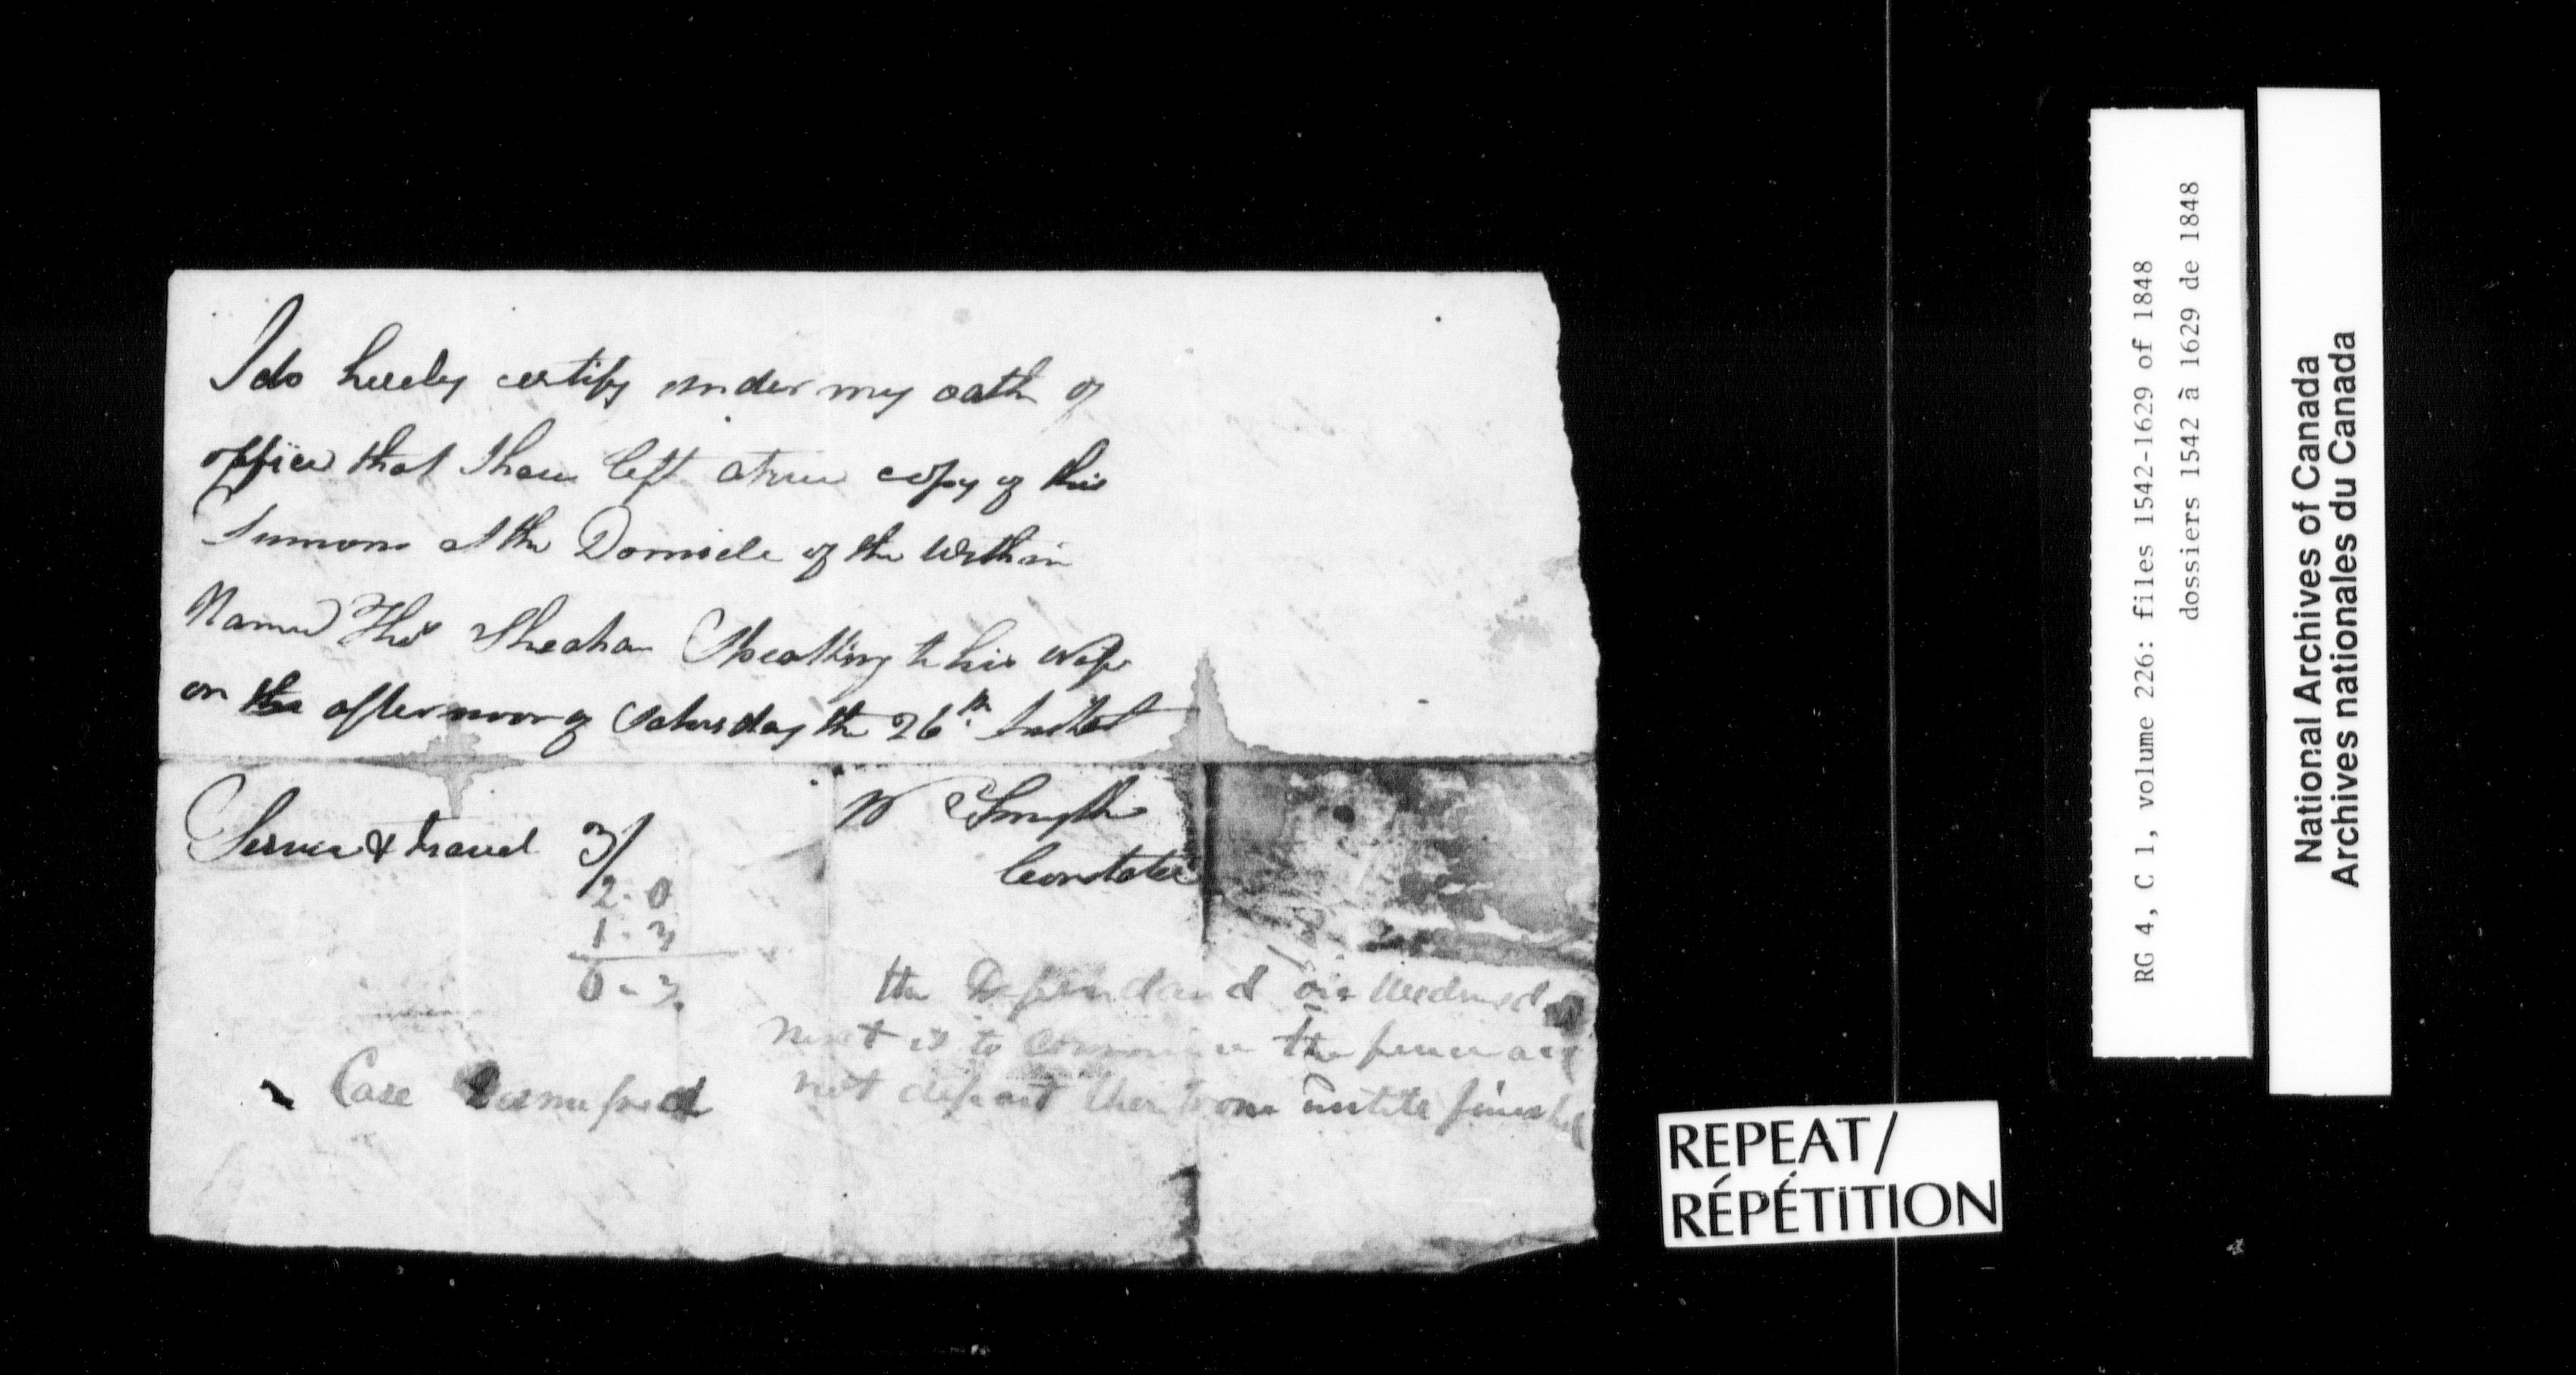 I do hereby certify under my oath of
office that I have left a true copy of this
Sumons at the Domicile of the Within
Named Thos Sheahan Speaking to his wife
on the afternoon of Saturday the 26th Instat
W Smyth
Service & travel 3/
Constable
2-0
1-3
0-3
the Defendand on Wednesd
next is to commince the fence and
Case Dismissed not depart therfrom untill finished
REPEAT/
RÉPÉTITION
RG 4, C 1, volume 226: files 1542-1629 of 1848
dossiers 1542 à 1629 de 1848
National Archives of Canada
Archives nationales du Canada